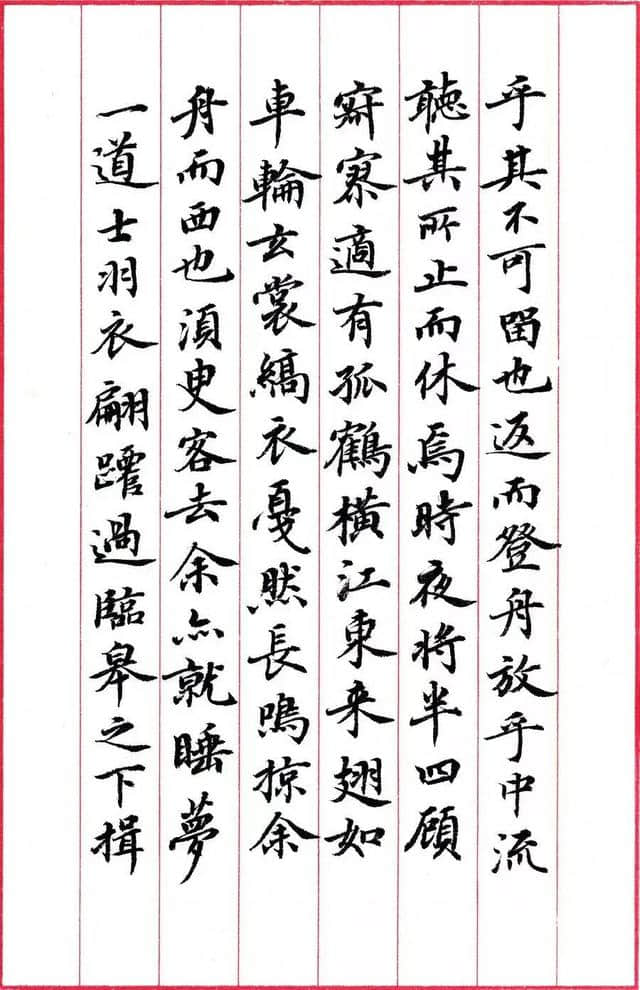 乎其不可留也返而登舟放乎中流
聽其所止而休焉時夜将半四顧
寂寥適有孤鶴橫江東来翅如
車輪玄裳縞衣戛然長鳴掠余
舟而西也須臾客去余亦就睡夢
一道士羽衣翩躚過臨皋之下揖